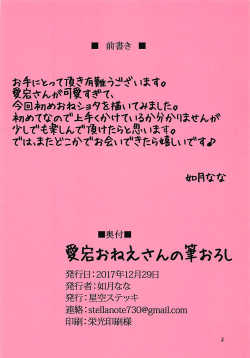 ■ 前書き ■
お手にとって頂き有難うございます。
愛宕さんが可愛すぎて、
今回初めおねショタを描いてみました。
初めてなので上手くかけているか分かりませんが
少しでも楽しんで頂けたらと思います。
では、またどこかでお会いできたら嬉しいです♪
如月なな
■奥付■
愛宕おねえさんの筆おろし
発行日：2017年12月29日
発行者：如月なな
発行：星空ステッキ
連絡：stellanote730@gmail.com
印刷：栄光印刷様
2